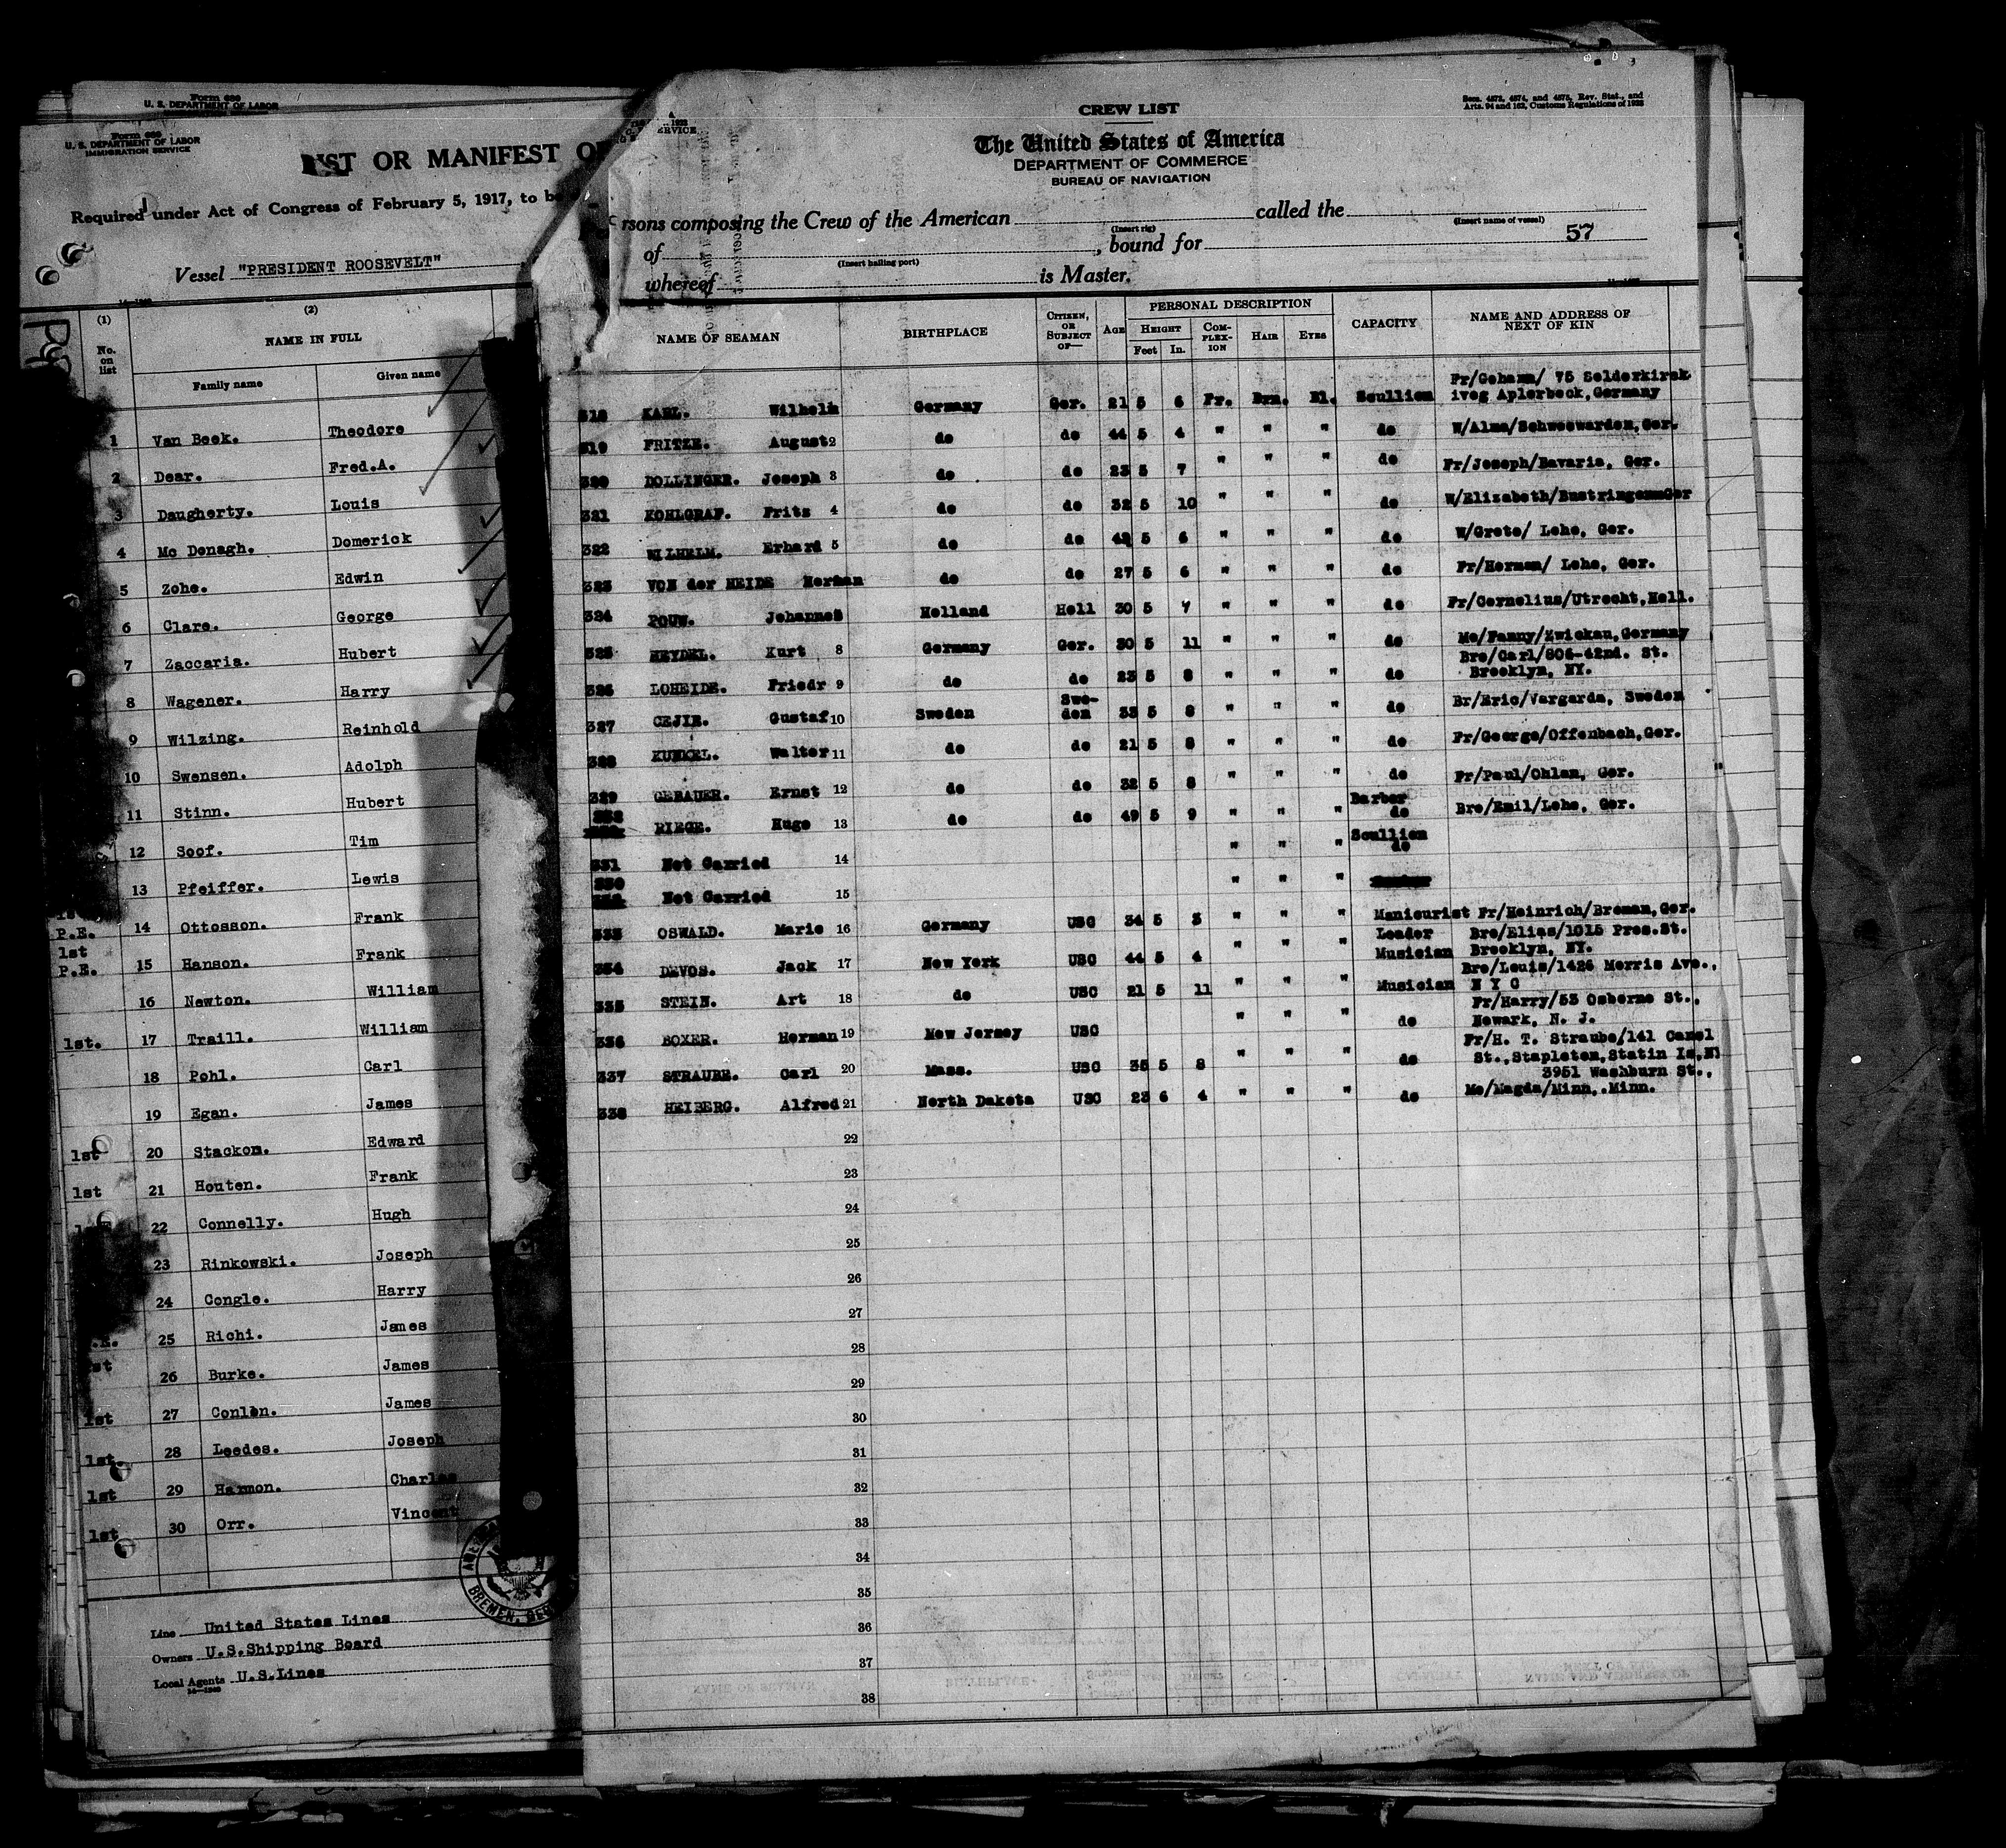 Form 689
U. S. DEPARTMENT OF LABOR
Form 689
U. S. DEPARTMENT OF LABOR
IMMIGRATION SERVICE
LIST OR MANIFEST OF
Required under Act of Congress of February 5, 1917, to be
Vessel "PRESIDENT ROOSEVELT"
(1) (2)
No. on list NAME IN FULL
Family name Given name
1 Van Beek. Theodore
2 Dear. Fred.A.
3 Daugherty. Louis
4 Mc Donagh. Domerick
5 Zohe. Edwin
6 Clare. George
7 Zaccaria. Hubert
8 Wagener. Harry
9 Wilzing. Reinhold
10 Swensen. Adolph
11 Stinn. Hubert
12 Soof. Tim
13 Pfeiffer. Lewis
P.E. 14 Ottosson. Frank
1st P.E. 15 Hanson. Frank
16 Newton. William
1st. 17 Traill. William
18 Pohl. Carl
19 Egan. James
1st 20 Stackom. Edward
1st 21 Houten. Frank
22 Connelly. Hugh
23 Rinkowski. Joseph
24 Congle. Harry
25 Richi. James
26 Burke. James
1st 27 Conlon. James
1st. 28 Leedes. Joseph
1st 29 Harmon. Charles
1st 30 Orr. Vincent
Line United States Lines
Owners U.S.Shipping Board
Local Agents U.S.Lines
BREMEN,
Secs. 4573, 4574, and 4575, Rev. Stat., and
Arts. 94 and 162, Customs Regulations of 1923
CREW LIST
The United States of America
DEPARTMENT OF COMMERCE
BUREAU OF NAVIGATION
rsons composing the Crew of the American called the
(Insert rig) (Insert name of vessel)
of , bound for 57
(Insert hailing port)
whereof is Master.
NAME OF SEAMAN BIRTHPLACE CITIZEN, OR SUBJECT OF— AGE PERSONAL DESCRIPTION CAPACITY NAME AND ADDRESS OF NEXT OF KIN
HEIGHT COMPLEXION HAIR EYES
Feet In.
Fr/Gehann/ 75 Selderkirsk
318 KARL. Wilhelm Germany Ger. 21 5 6 Fr. Brn. Bl. Scullion iveg Aplerbeck, Germany
319 FRITZE. August 2 do do 44 5 4 " " " do W/Alma/Schweewarden, Ger.
320 DOLLINGER. Joseph 3 do do 23 5 7 " " " do Fr/Joseph/Bavaria, Ger.
321 KOHLGRAF. Fritz 4 do do 32 5 10 " " " do W/Elizabeth/
322 WILHELM. Erhard 5 do do 42 5 6 " " " do W/Grete/ Lehe, Ger.
323 VON der HEIDE Herman do do 27 5 6 " " " do Fr/Herman/ Lehe, Ger.
324 POUW. Johannes Holland Holl 30 5 7 " " " do Fr/Cornelius/Utrecht, Holl.
325 HEYDEL. Kurt 8 Germany Ger. 30 5 11 " " " do Mo/Fanny/Zwickau, Germany
Bro/Carl/806-42nd. St.
326 LOHEIDE. Friedr 9 do do 23 5 8 " " " do Brooklyn, NY.
327 CEJIR. Gustaf 10 Sweden Sweden 33 5 8 " " " do Br/Eric/Vargarda, Sweden
328 KUNKEL. Walter 11 do do 21 5 8 " " " do Fr/George/Offenbach, Ger.
329 GEBAUER. Ernst 12 do do 32 5 8 " " " do Fr/Paul/Ohlan, Ger.
Barber
332 RIEGE. Hugo 13 do do 49 5 9 " " " do Bro/Emil/Lehe, Ger.
Scullion
331 Not Carried 14 " " " do
330 Not Carried 15 " " "
333 OSWALD. Marie 16 Germany USC 34 5 3 " " " Manicurist Fr/Heinrich/Bremen, Ger.
Leader Bro/Elias/1015 Pres.St.
334 DEVOS. Jack 17 New York USC 44 5 4 " " " Musician Brooklyn, NY.
Bro/Louis/1426 Morris Ave.,
335 STEIN. Art 18 do USC 21 5 11 " " " Musician N Y C
Fr/Harry/53 Osborne St.,
336 BOXER. Herman 19 New Jersey USC " " " do Newark, N. J.
Fr/H. T. Straube/141 Canel
337 STRAUBE. Carl 20 Mass. USC 35 5 8 " " " do St., Stapleton, Statin Is, NY
3951 Washburn St.,
338 HEIBERG. Alfred 21 North Dakota USC 23 6 4 " " " do Mo/Magda/Minn,.Minn.
22
23
24
25
26
27
28
29
30
31
32
33
34
35
36
37
38